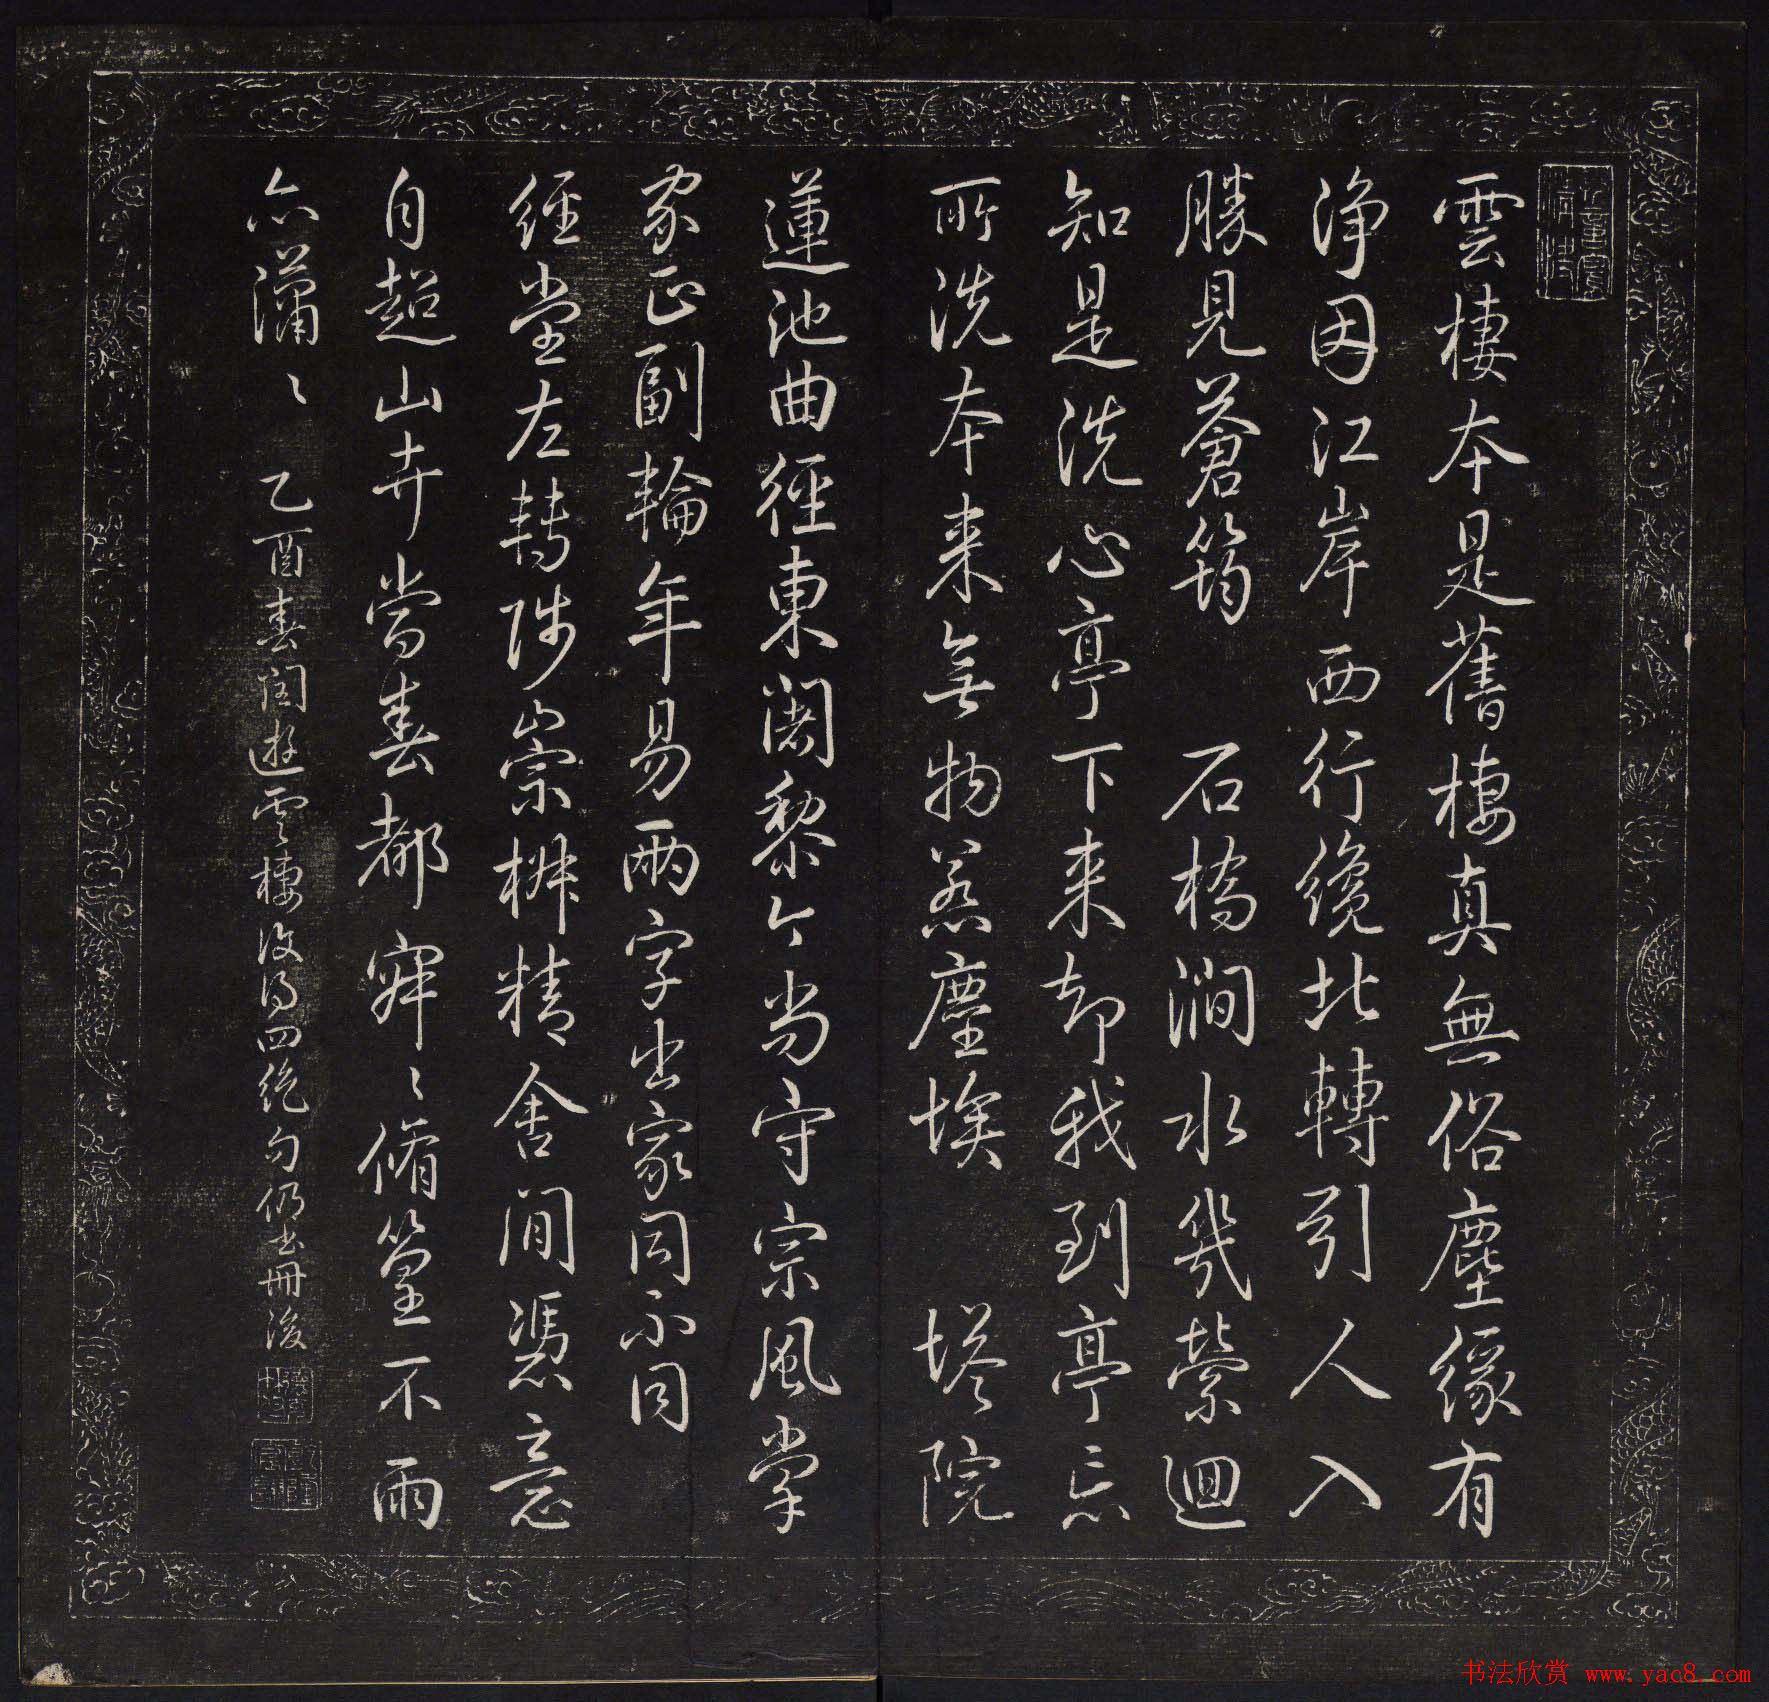 雲棲本是舊棲真無俗塵緣有
淨因江岸西行纔北轉引人入
勝見蒼筠　石橋澗水幾縈迴
知是洗心亭下来却我到亭忘
所洗本来無物惹塵埃　塔院
蓮池曲徑東闍黎個個守宗風掌
家正副輪年易兩字出家同不同
經堂左轉陟崇椒精舍閒憑意
自超山卉當春都寂〻脩篁不雨
亦瀟〻　乙酉春閏遊雲棲復得四絶句仍書冊後
书法欣赏 www.yac8.com